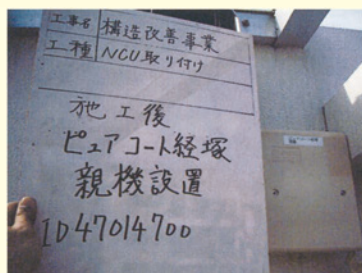 工事名 構造改善事業
工種 NCU取り付け
施工後
ピュアコート経塚
親機設置
ID47014700